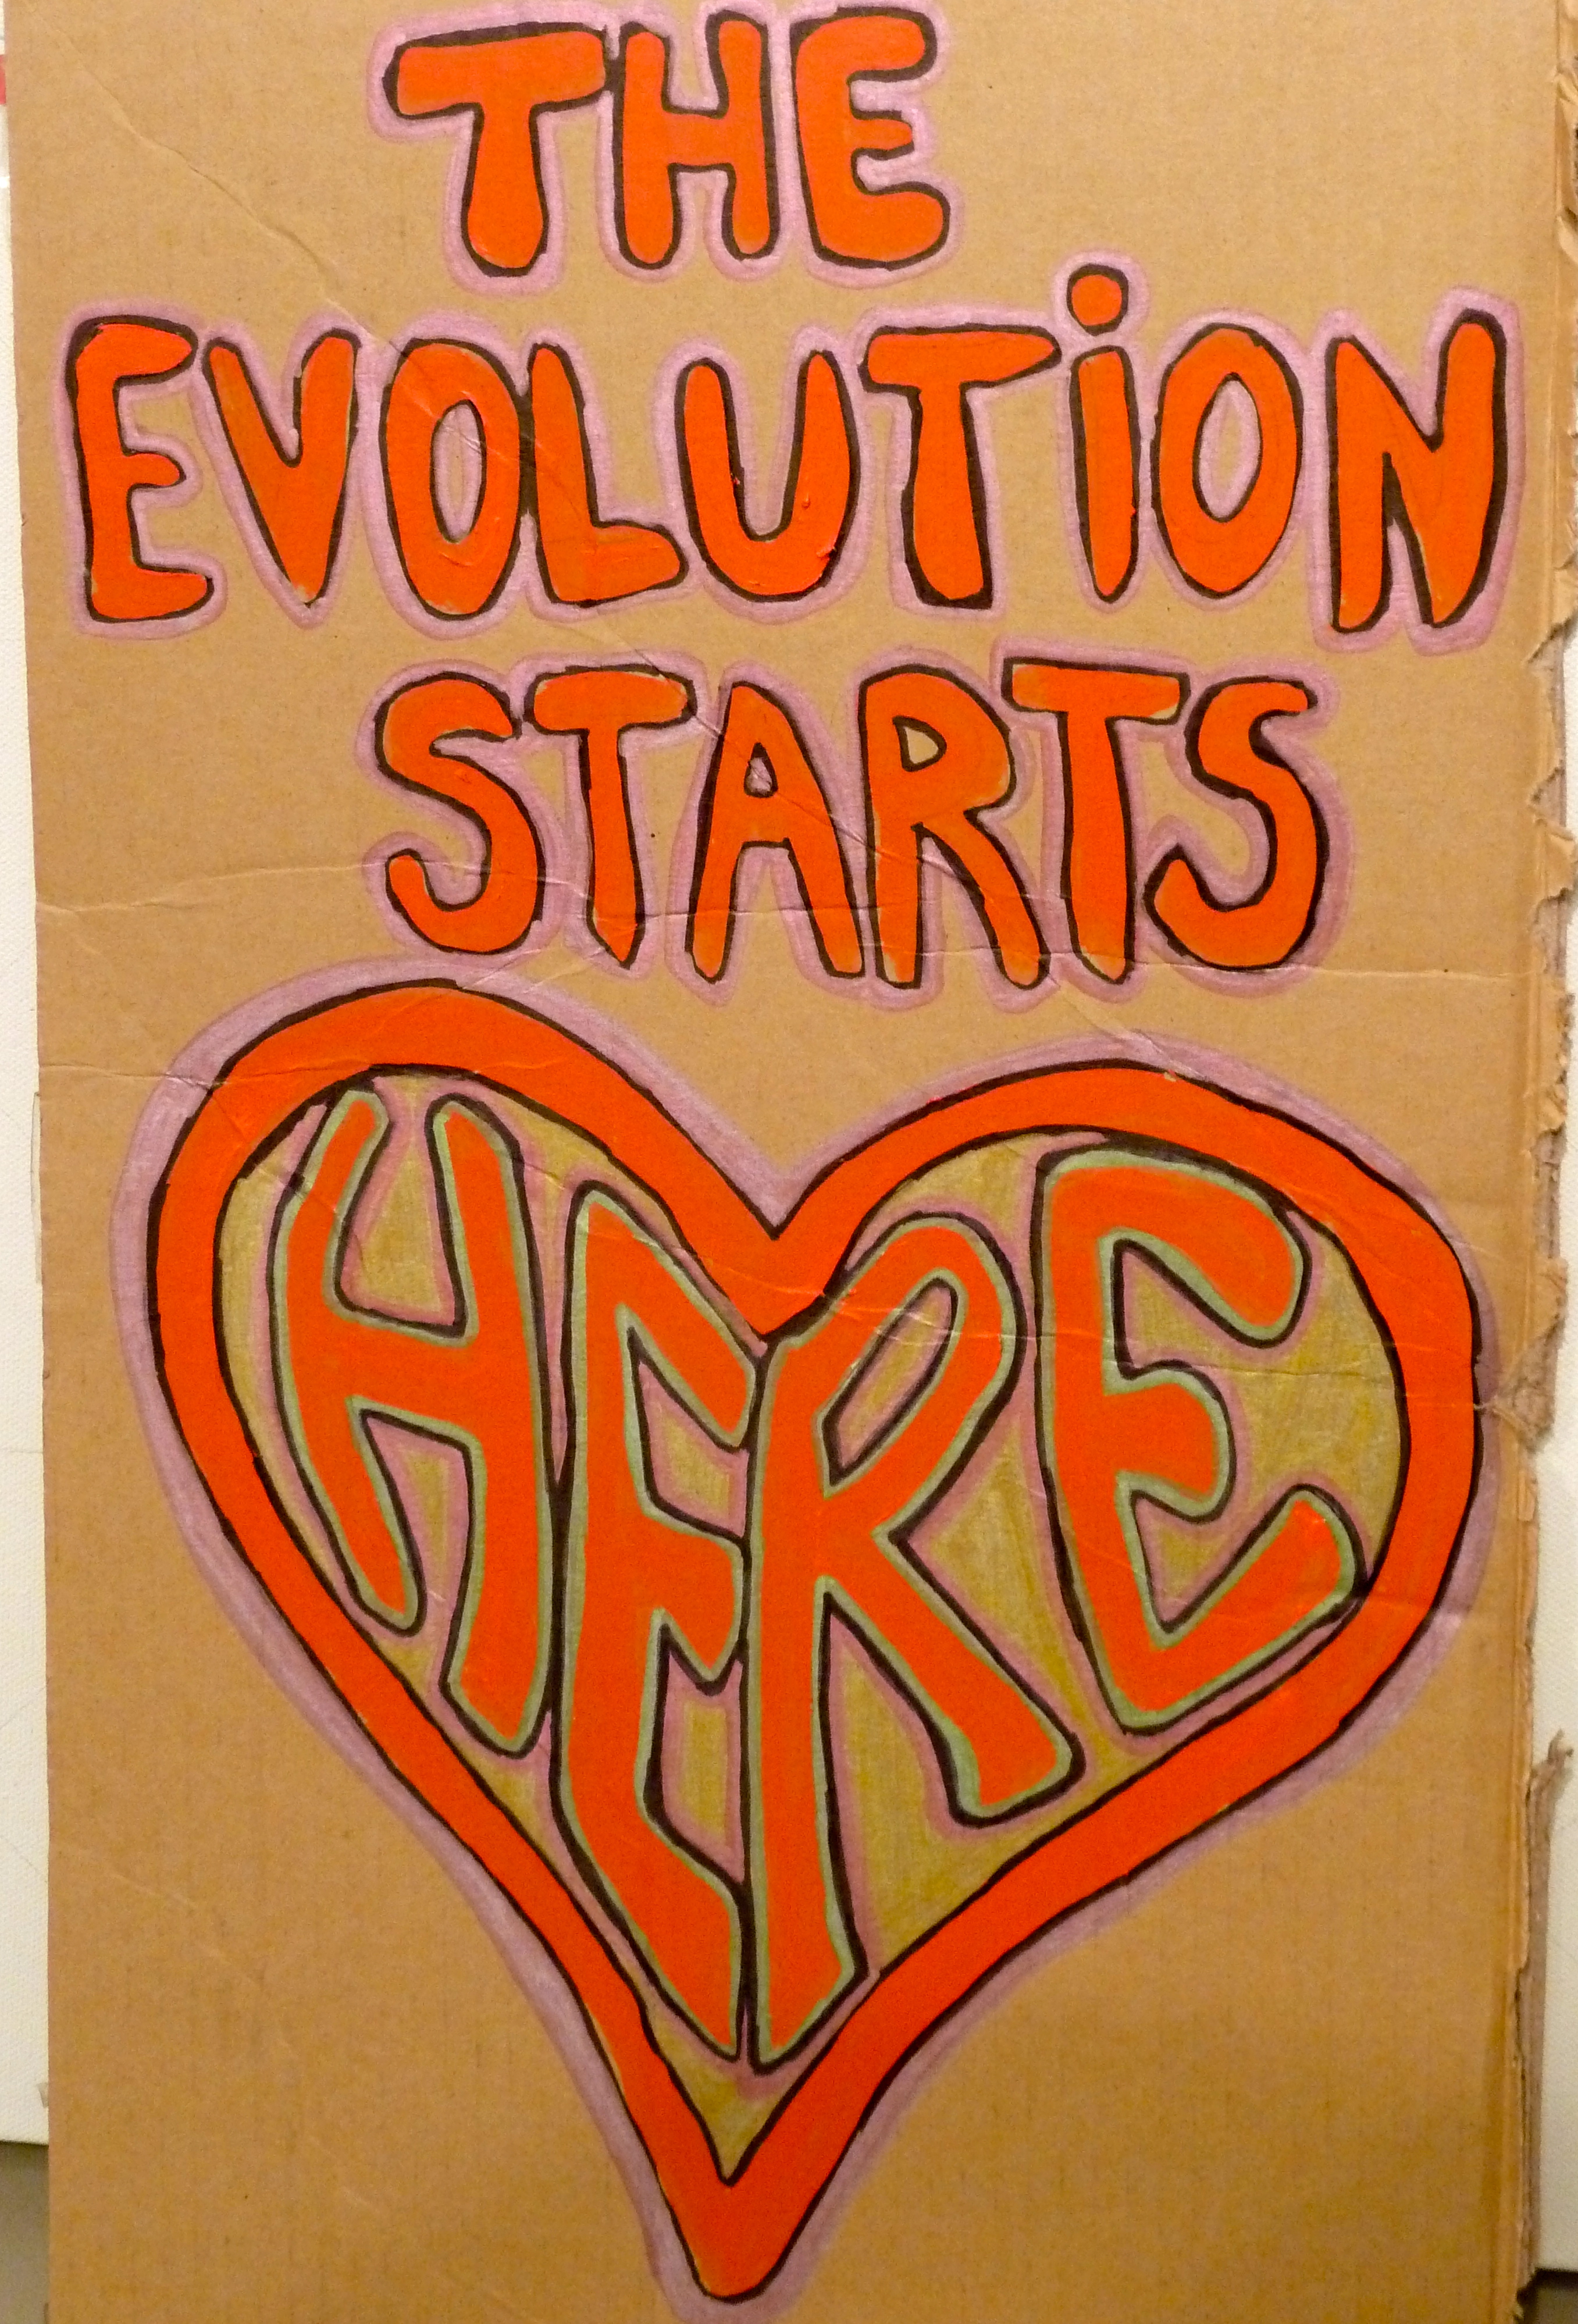 THE
EVOLUTiON
STARTS
HERE